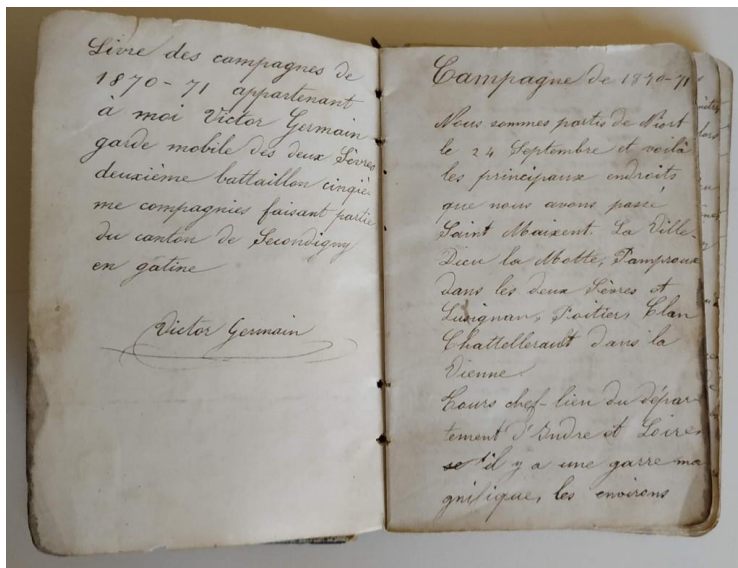 Livre des campagnes de
1870-71 appartenant
à moi Victor Germain
garde mobile des deux Sèvres
deuxième battaillon cinqiè-
me compagnies faisant partie
du canton de Secondigny
en gâtine
Victor Germain
Campagne de 1870-71
Nous sommes partis de Niort
le 24 Septembre et voilà
les principaux endroits
que nous avons passé
Saint Maixent La Ville-
Dieu la Motte, Pamproux
dans les deux Sèvres et
Lusignan, Poitiers, Clan
Chattelleraut dans la
Vienne
Tours chef-lieu du dépar-
tement d'Indre et Loire,
il y a une garre ma
gnifique, les environs